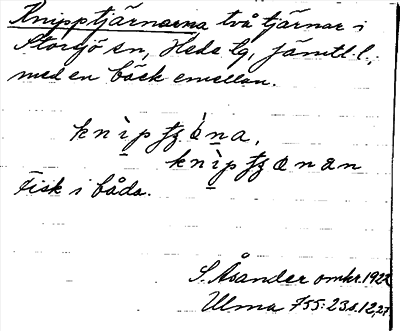 Knipptjärnarna två tjärnar i
Storsjö sn, Hede tg, Jämtl. l.,
med en bäck emellan.
Fisk i båda.
S. Åsander omkr. 1922
Ulma 755: 23 s. 12, 27